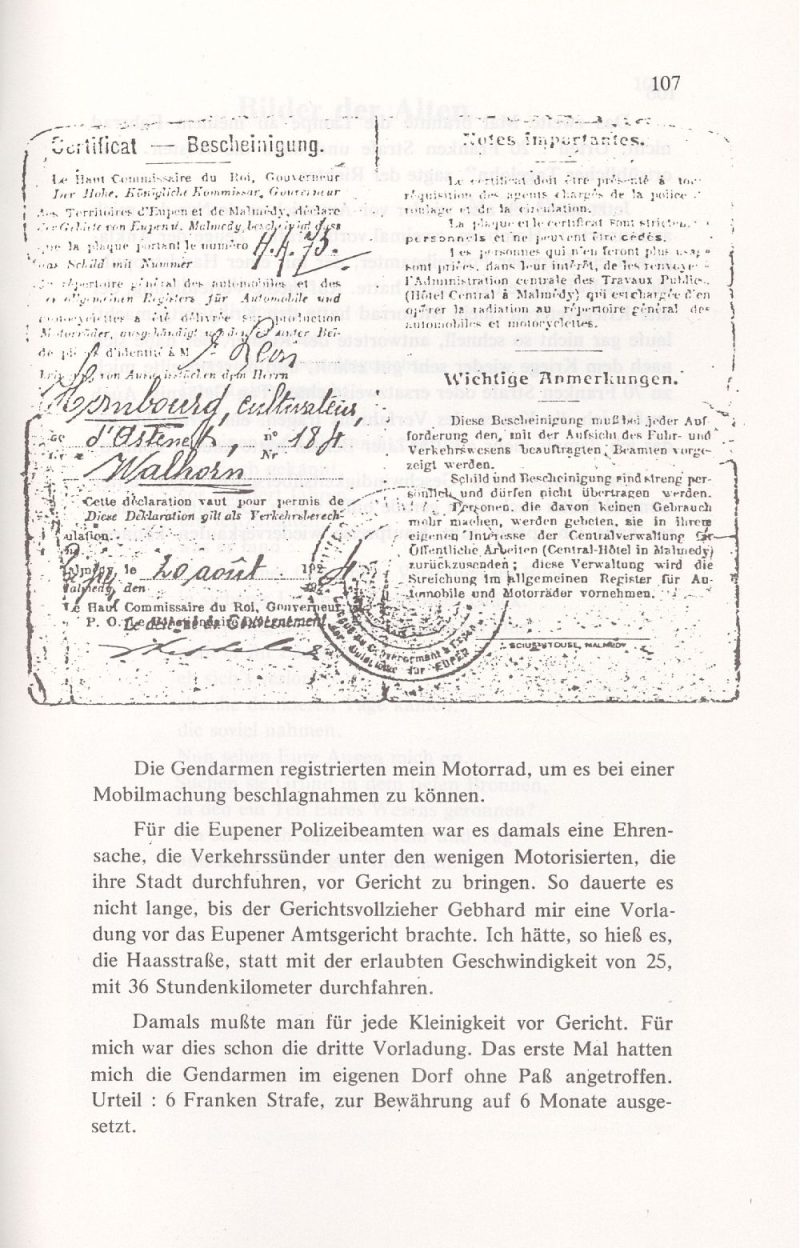 107
Certificat — Bescheinigung.
Le Haut Commissaire du Roi, Gouverneur
Der Hohe, Königliche Kommissar, Gouverneur
des Territoires d'Eupen et de Malmédy, déclare
der Gebiete von Eupen u. Malmedy, bescheinigt dass
que la plaque portant le numéro
das Schild mit Nummer
répertoire général des automobiles et des
allgemeinen Registers für Automobile und
motocyclettes a été délivrée sur production
Motorräder, ausgehändigt
d'identité à M
von Ausweispapieren dem Herrn
Hombourg, cultivateur,
d'Astenet, n° 184
Nr
Walhorn
Cette déclaration vaut pour permis de
Diese Deklaration gilt als Verkehrsberech-
le 20 août 192
Malmedy, den
Le Haut Commissaire du Roi, Gouverneur
P. O.
Notes importantes.
Le certificat doit être présenté à toute
réquisition des agents chargés de la police
roulage et de la circulation.
La plaque et le certificat sont stricte.
personnels et ne peuvent être cédés.
Les personnes qui n'en feront plus usage
sont priées, dans leur intérêt, de les renvoyer
l'Administration centrale des Travaux Publics,
(Hôtel Central à Malmédy) qui est chargée d'en
opérer la radiation au répertoire général des
automobiles et motocyclettes.
Wichtige Anmerkungen.
Diese Bescheinigung muß bei jeder Auf
forderung den, mit der Aufsicht des Fuhr- und
Verkehrswesens beauftragten, Beamten vorge-
zeigt werden.
Schild und Bescheinigung sind streng per-
sönlich und dürfen nicht übertragen werden.
Personen, die davon keinen Gebrauch
mehr machen, werden gebeten, sie in ihrem
eigenen Interesse der Centralverwaltung für
Öffentliche Arbeiten (Central-Hôtel in Malmedy)
zurückzusenden; diese Verwaltung wird die
Streichung im allgemeinen Register für Au-
tomobile und Motorräder vornehmen.
MALMÉDY
Die Gendarmen registrierten mein Motorrad, um es bei einer
Mobilmachung beschlagnahmen zu können.
Für die Eupener Polizeibeamten war es damals eine Ehren-
sache, die Verkehrssünder unter den wenigen Motorisierten, die
ihre Stadt durchfuhren, vor Gericht zu bringen. So dauerte es
nicht lange, bis der Gerichtsvollzieher Gebhard mir eine Vorla-
dung vor das Eupener Amtsgericht brachte. Ich hätte, so hieß es,
die Haasstraße, statt mit der erlaubten Geschwindigkeit von 25,
mit 36 Stundenkilometer durchfahren.
Damals mußte man für jede Kleinigkeit vor Gericht. Für
mich war dies schon die dritte Vorladung. Das erste Mal hatten
mich die Gendarmen im eigenen Dorf ohne Paß angetroffen.
Urteil : 6 Franken Strafe, zur Bewährung auf 6 Monate ausge-
setzt.